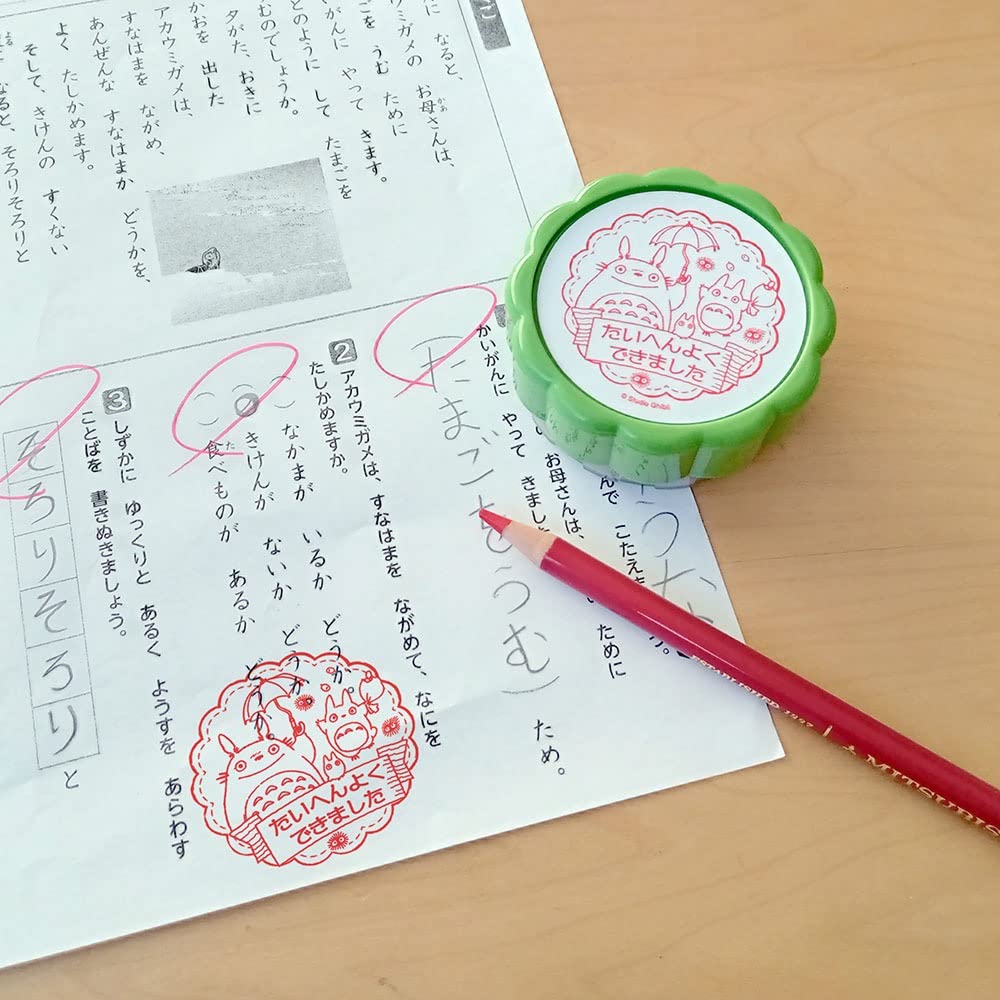 こ
に なると、
ウミガメの お母さんは、
かあ
ごを うむ ために
いがんに やって きます。
どのように して たまごを
むのでしょうか。
夕がた、おきに
かおを 出した
アカウミガメは、
すなはまを ながめ、
あんぜんな すなはまか どうかを、
よく たしかめます。
そして、きけんの すくない
なると、そろりそろりと
かいがんに やって きまし
お母さんは、
ために
たまごをうむ
ため。
2
アカウミガメは、すなはまを ながめて、なにを
たしかめますか。
なかまが いるか どうか。
きけんが ないか どうか。
食べものが あるか どうか。
た
3
しずかに ゆっくりと あるく ようすを あらわす
ことばを 書きぬきましょう。
そろりそろり
と
たいへんよく
できました
© Studio Ghibli
たいへんよく
できました
MITSUBIS